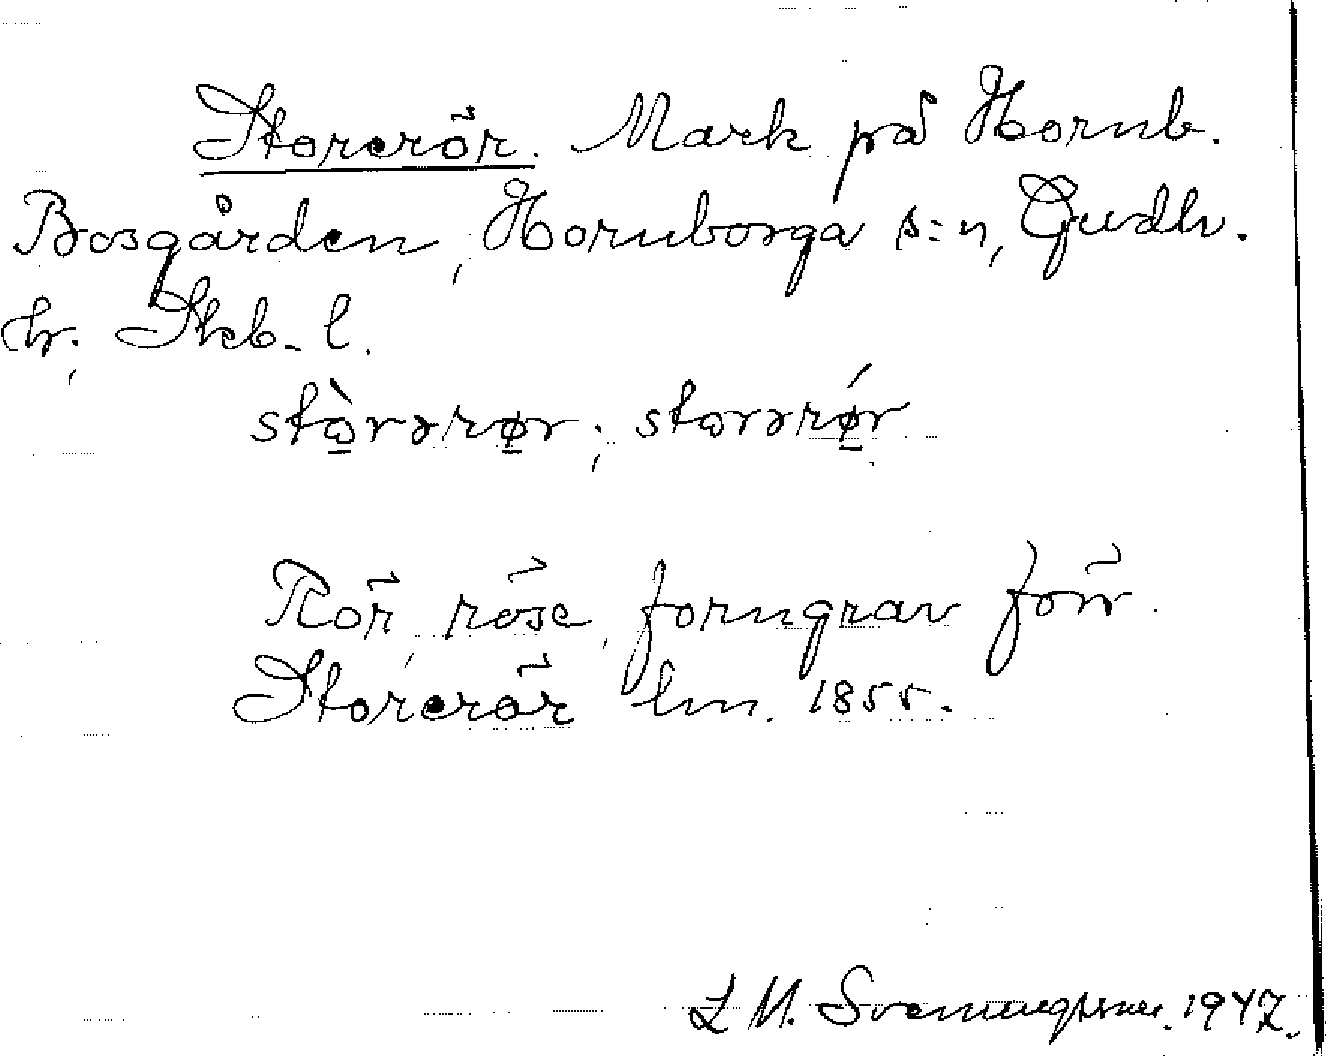 Storerör. Mark på Hornb.
Bosgården, Hornborga s:n, Gudh.
hr, Skb. l.
stòrərør; storərǿr
Rör, röse, forngrav förr.
Storerör lm. 1855.
L M. Svenungsson. 1947.